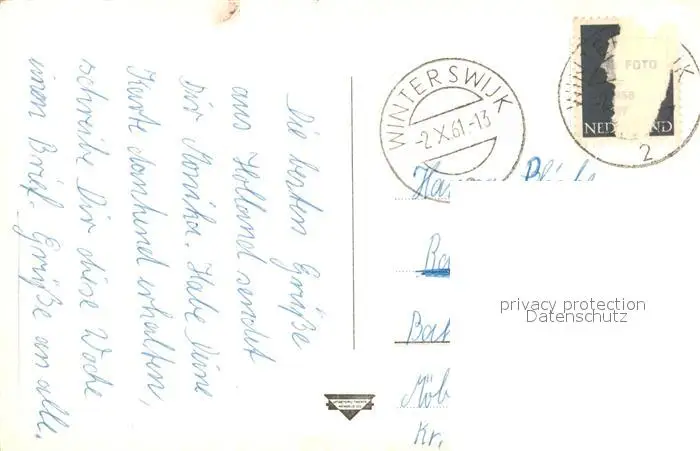 Die besten Grüße
aus Holland sendet
Dir Monika. Habe Deine
Karte dankend erhalten,
schreibe Dir diese Woche
einen Brief. Grüße an alle.
WINTERSWIJK
-2.X.61.-13
FOTO
NEDERLAND
2
Ba
Bak
Möh
Kr.
privacy protection
Datenschutz